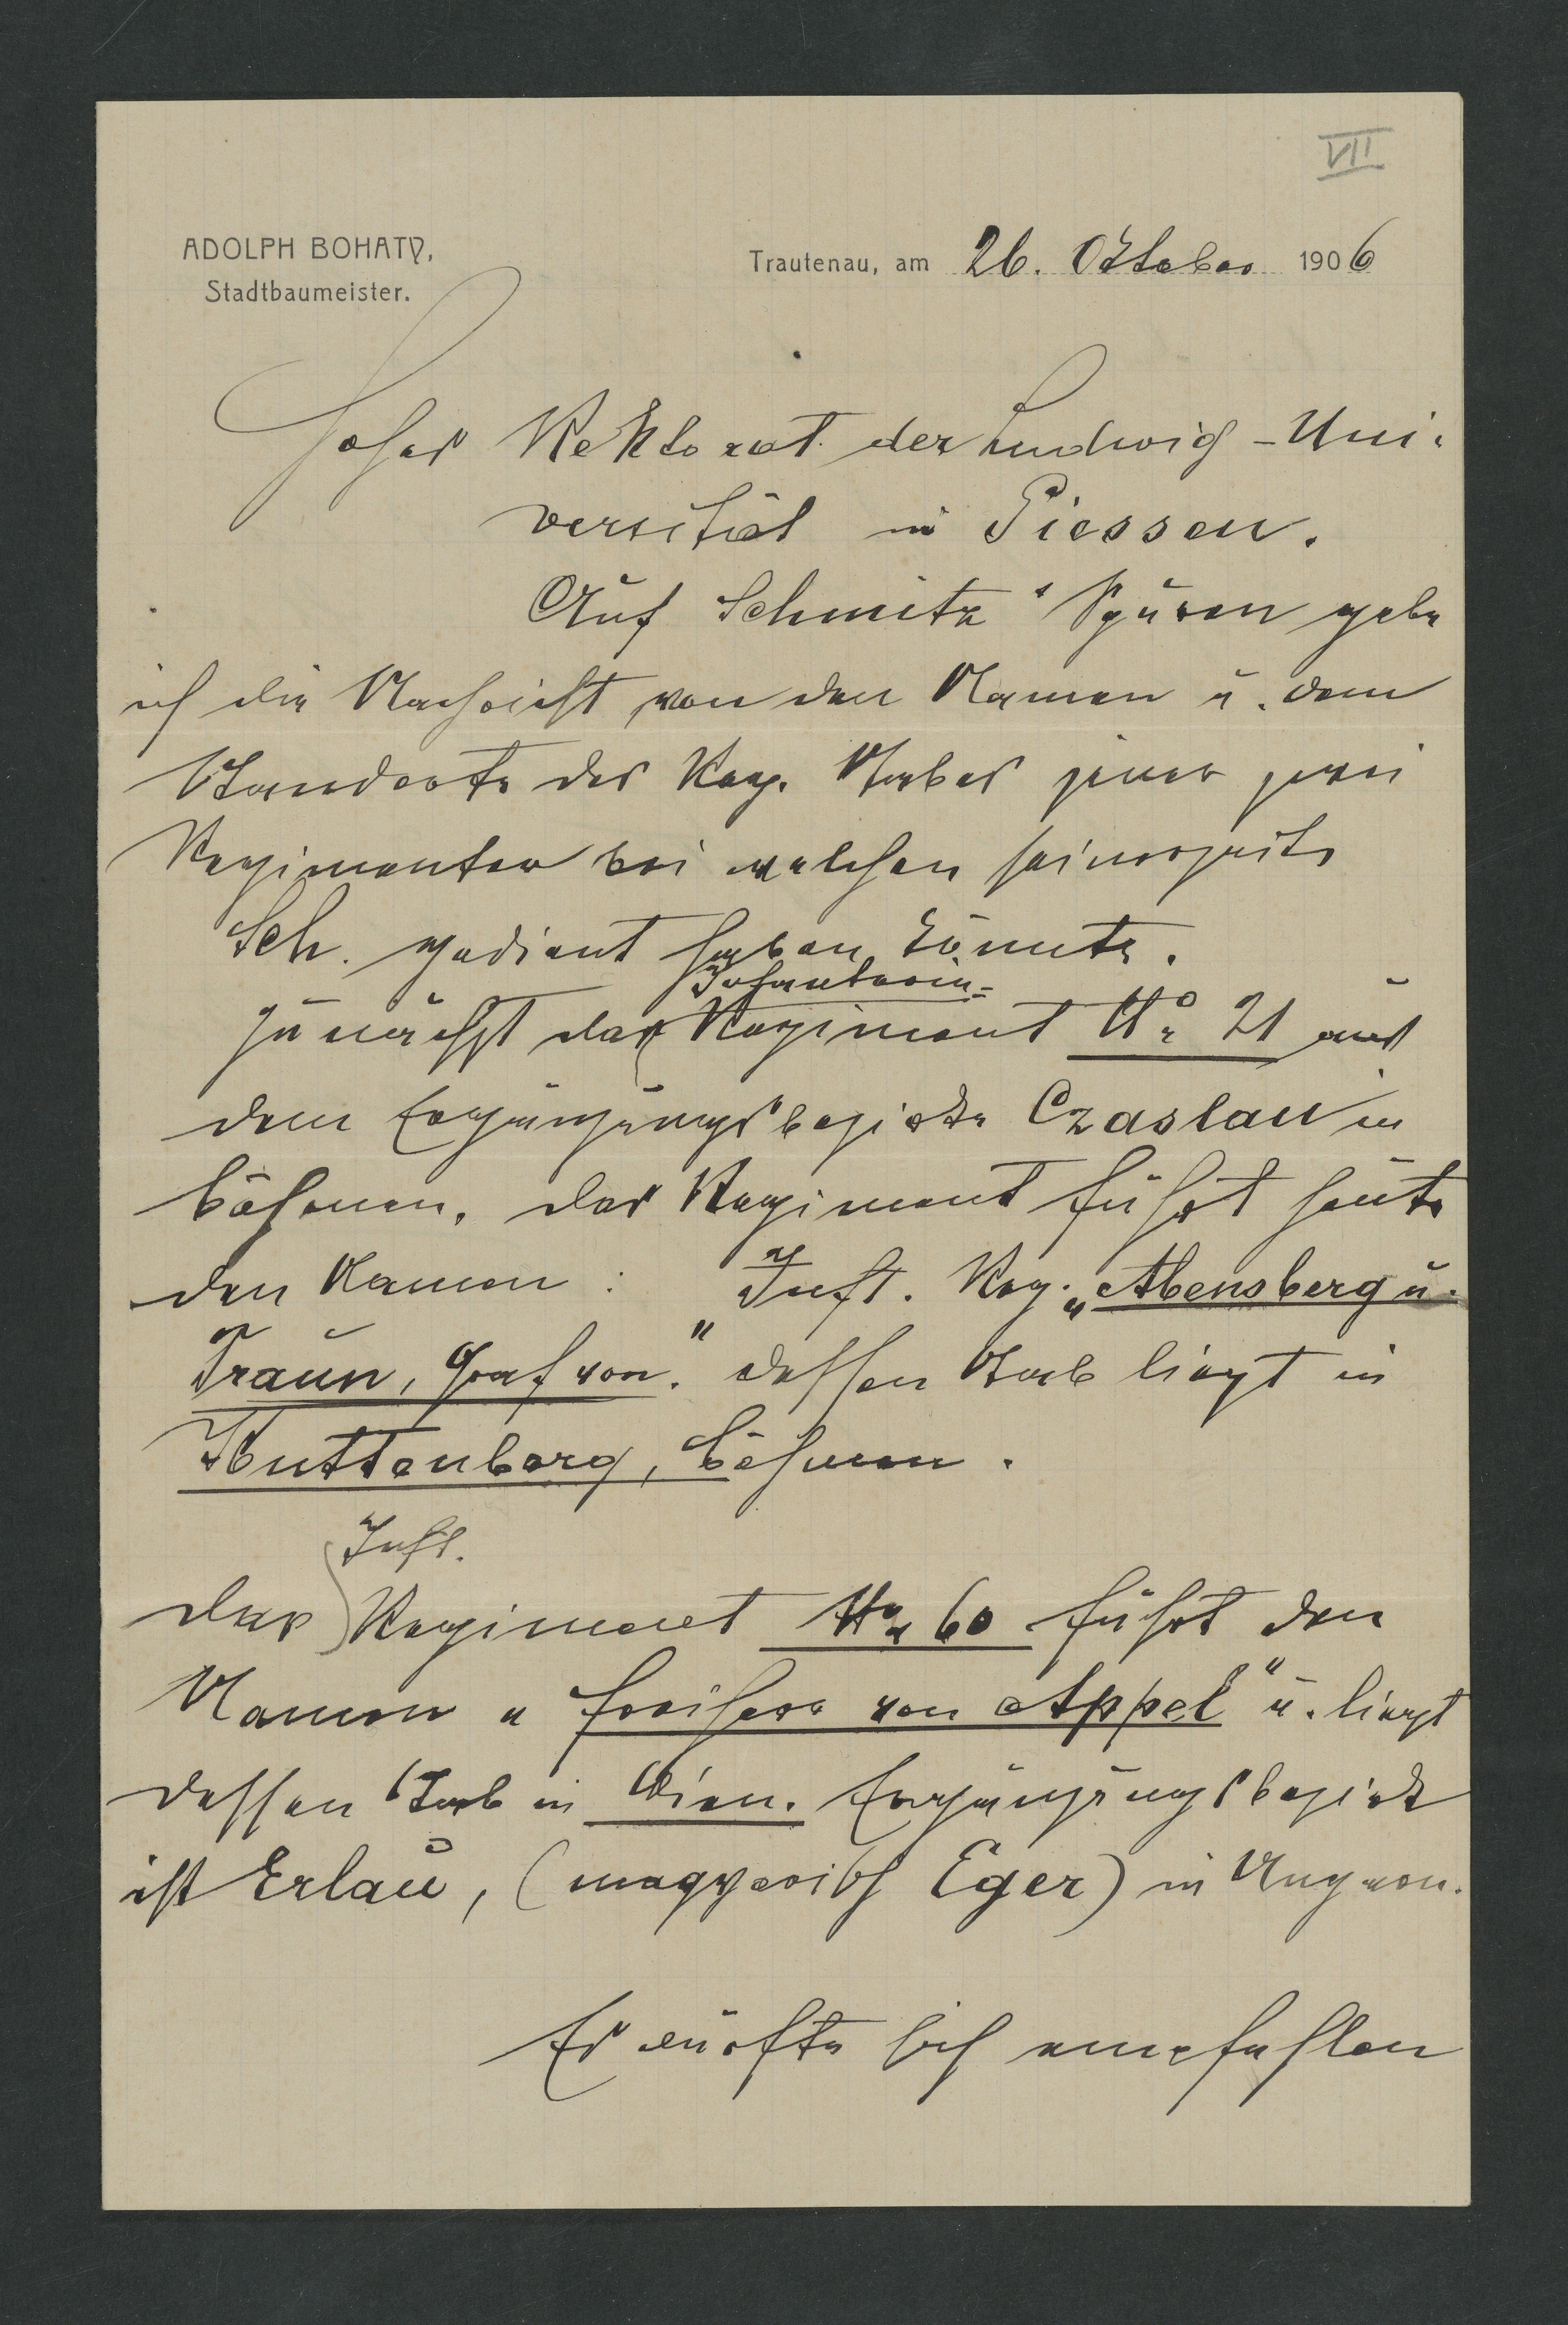 VII
ADOLPH BOHATY,
Stadtbaumeister.
Trautenau, am 26. Oktober 1906
Hohes Rektorat der Ludwig-Uni-
versität in Giessen.
Auf Schmitz' Spuren gebe
ich die Nachricht von den Namen u. dem
Standorte des Reg. Stabes jener zwei
Regimenter bei welchen seinerzeits
Sch. gedient haben könnte.
Infanterie-
Zunächst das Regiment No 21 aus
dem Ergänzungsbezirke Czaslau in
Böhmen. Das Regiment führt heute
den Namen: Inft. Reg. „Abensberg u.
Traun, Graf von." dessen Stab liegt in
Kuttenberg, Böhmen.
Inft.
Das Regiment No 60 führt den
Namen „Freiherr von Appel" u. liegt
dessen Stab in Wien. Ergänzungsbezirk
ist Erlau, (magyarisch Eger) in Ungarn.
Es dürfte sich empfehlen